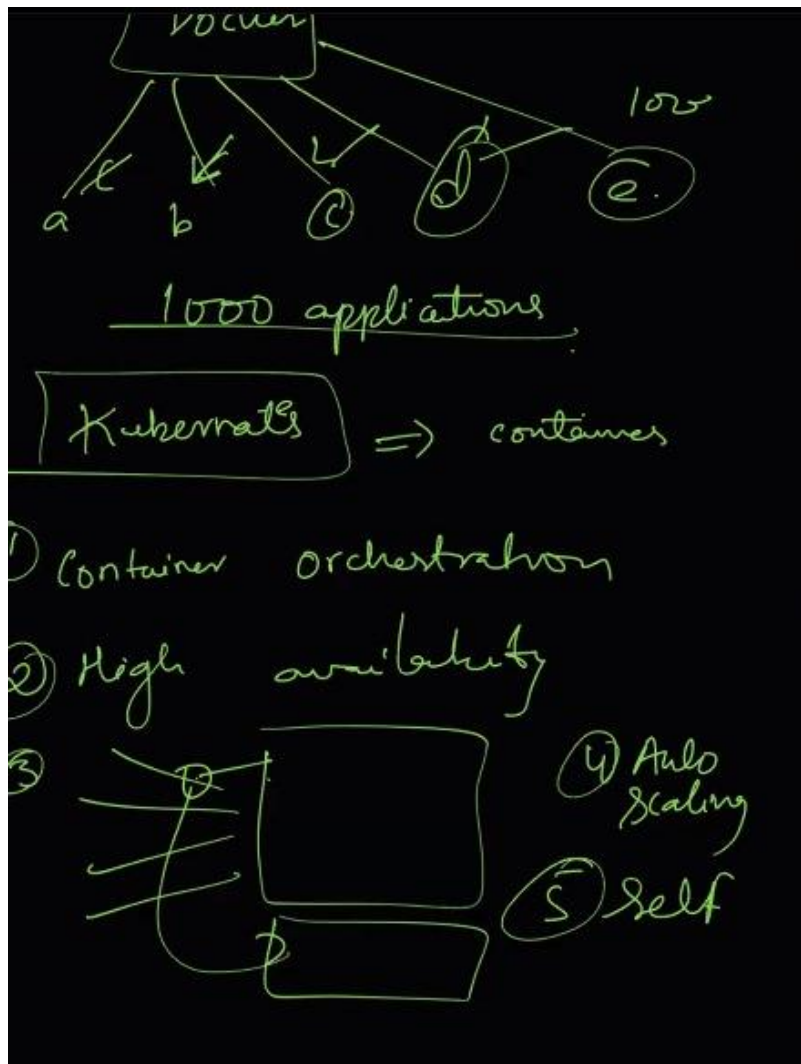 Docker
100
a b c d e.
1000 applications
Kubernates => containes
1 Container orchestration
2 High availability
3
4 Auto
Scaling
5 Self